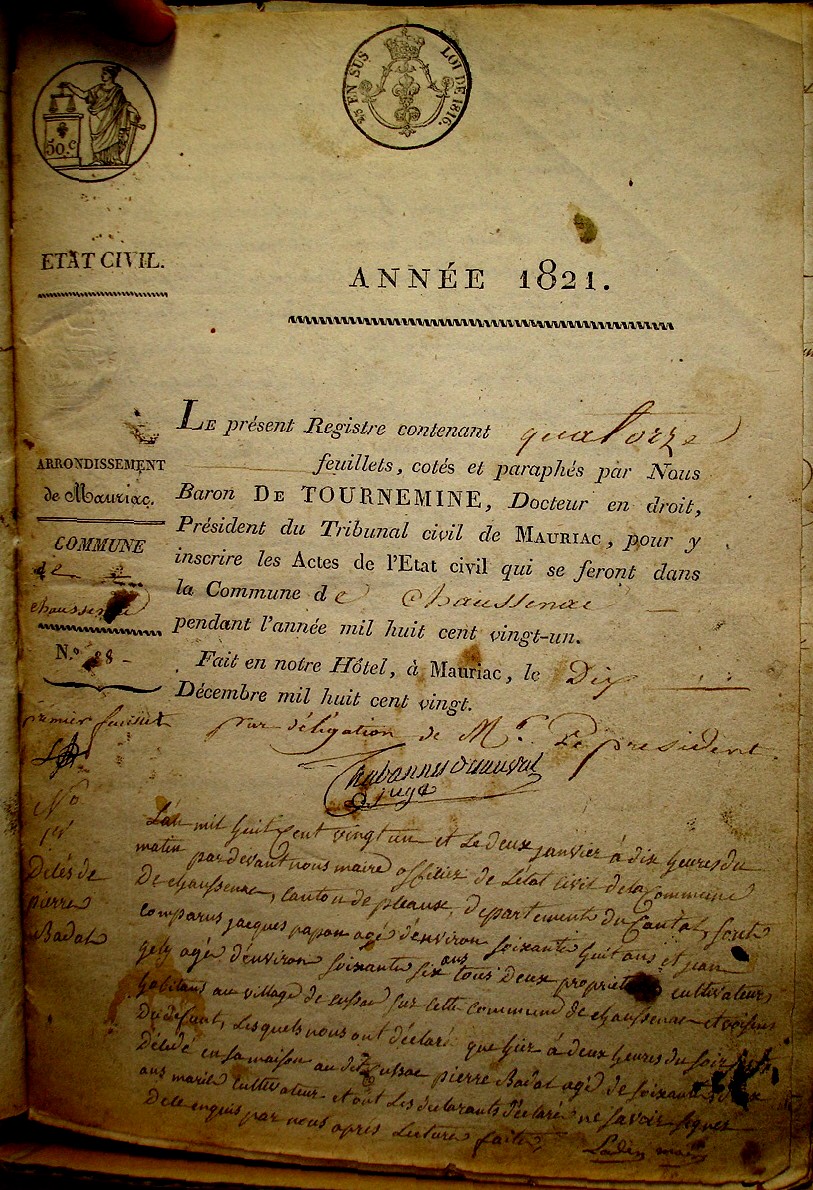 25 EN SUS LOI DE 1816.
50.c
ETAT CIVIL.
ANNÉE 1821.
ARRONDISSEMENT
de Mauriac.
COMMUNE
de
chaussenac
N.º 88
LE présent Registre contenant quatorze
feuillets, cotés et paraphés par Nous
Baron DE TOURNEMINE, Docteur en droit,
Président du Tribunal civil de MAURIAC, pour y
inscrire les Actes de l'Etat civil qui se feront dans
la Commune de chaussenac
pendant l'année mil huit cent vingt-un.
Fait en notre Hôtel, à Mauriac, le Dix
Décembre mil huit cent vingt.
par délégation de Mr. Le president.
juge
premier feuillet
No
1er
Décès de
pierre
Badat
L'an mil huit cent vingt un et le deux janvier à dix heures du
matin pardevant nous maire officier de l'état civil de la Commune
De chaussenac, canton de pleaux, département du Cantal, sont
comparus jacques papon agé d'environ soixante huit ans et jean
gely agé d'environ soixante six ans tous deux propriétaires cultivateurs
habitans au village de cussac sur cette commune de chaussenac et voisins
Du défunt, Lesquels nous ont déclaré que hier à deux heures du soir est
Décédé en sa maison au dit cussac pierre Badat agé de soixante
ans marié cultivateur et ont Les déclarants déclaré ne savoir signer
De ce enquis par nous après Lecture faite